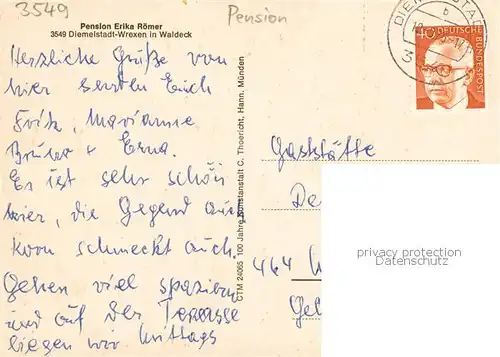 3549
Pension
Pension Erika Römer
3549 Diemelstadt-Wrexen in Waldeck
Herzliche Grüße von
hier senden Euch
Fritz, Marianne
Bruder + Erna.
Es ist sehr schön
hier, die Gegend auch
Korn schmeckt auch.
Gehen viel spazieren
und auf der Terasse
liegen wir Mittags
CTM 24065 100 Jahre Kunstanstalt C. Thoericht, Hann. Münden
DIEMELSTADT
b
3
40
DEUTSCHE
BUNDESPOST
Gaststätte
De
464
Gel
privacy protection
Datenschutz